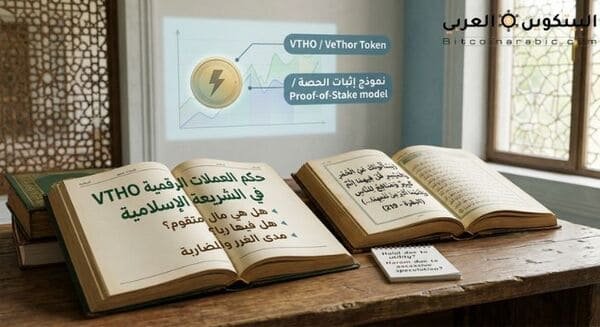 العربي
Bitcoinarabic.com
VTHO / VeThor Token
نموذج إثبات الحصة /
Proof-of-Stake model
حكم العملات الرقمية VTHO
في الشريعة الإسلامية
هل هي مال متقوم؟
هل فيها ربا؟
مدى الغرر والمضاربة
عن
كبير ومنافع للناس
(البقرة - 219)
Halal due to
utility?
Haram due to
excessive
speculation?